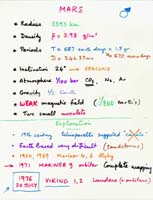 MARS
• Radius 3393 km
• Density ρ̄ = 3.93 g/cm³
• Periods T = 687 earth days = 1.9 yr
D = 24h 37m
• Inclination 24° → SEASONS
• Atmosphere 1/100 bar CO₂, N₂, Ar
• Gravity ⅓ Earth
• WEAK magnetic field
• Two small moonlets
Exploration
• 19th century Schiaparelli "canali"
• Earth based very difficult (sandstorms)
• 1964, 1969 Mariner 4, 6, 7 flyby
• 1971 MARINER 9 orbiter Complete mapping
• 1976 20 JULY VIKING 1, 2 Landers (& orbiters)